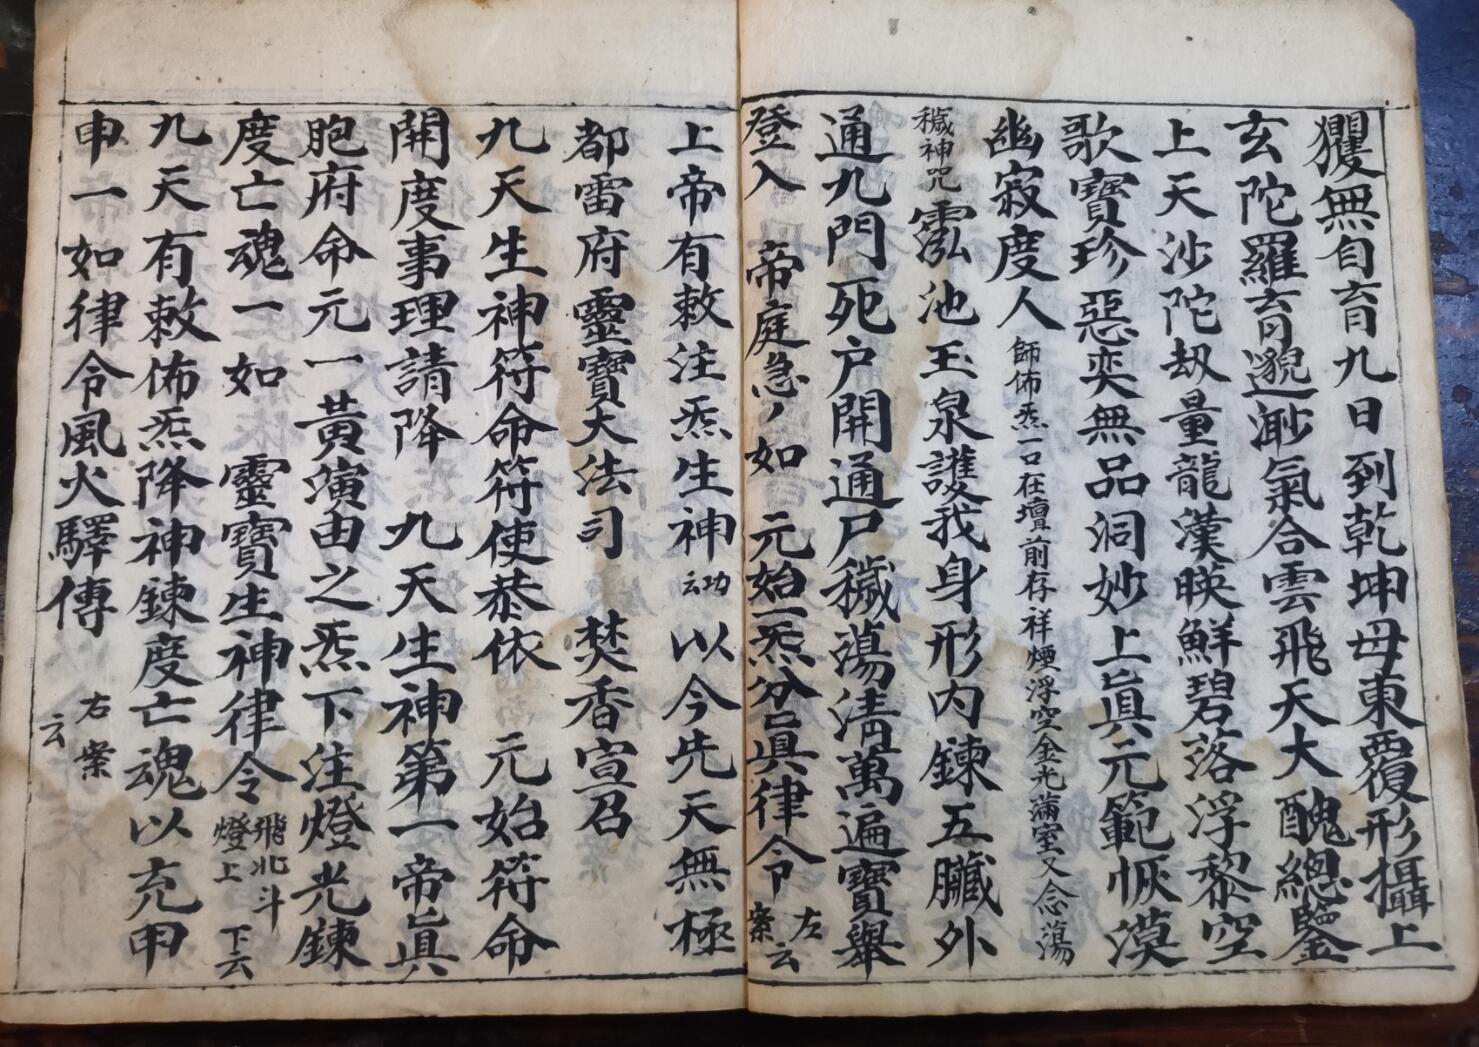 玃無自育九日到乾坤母東覆形攝上
玄陀羅育邈渺氣合雲飛天大醜總鑒
上天沙陀劫量龍漢瑛鮮碧落浮黎空
歌寶珍惡奕無品洞妙上真元範恢漠
幽寂度人 師佈炁一口在壇前存祥煙浮空金光滿室又念蕩
穢神咒 霐池玉泉護我身形内鍊五臟外
通九門死户開通尸穢蕩清萬遍寶舉
登入 帝庭急〃如 元始一炁分真律令 左案云
上帝有敕注炁生神 功云 以今先天無極
都雷府靈寶大法司 焚香宣召
九天生神符命符使恭依 元始符命
開度事理請降 九天生神第一帝真
胞府命元一黃演由之炁下注燈光鍊
度亡魂一如 靈寶生神律令 飛北斗燈上 下云
九天有敕佈炁降神鍊度亡魂以充甲
申一如律令風火驛傳 右案云